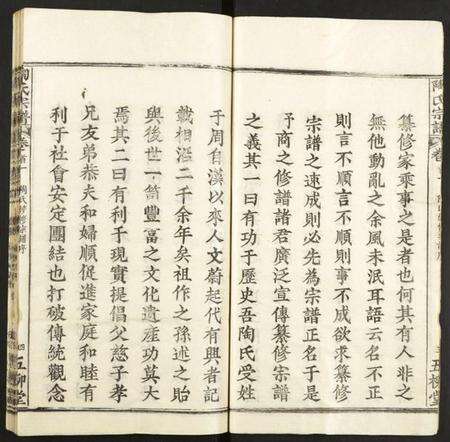 陶氏宗譜
五柳堂
纂修家乘事之是者也何其有人非之
無他動亂之余風未泯耳語云名不正
則言不順言不順則事不成欲求纂修
宗譜之速成則必先為宗譜正名于是
予商之修譜諸君廣泛宣傳纂修宗譜
之義其一曰有功于歷史吾陶氏受姓
于周自漢以來人文蔚起代有興者記
載相沿二千余年矣祖作之孫述之貽
與後世一筒豐富之文化遺產功莫大
焉其二曰有利于現實提倡父慈子孝
兄友弟恭夫和婦順促進家庭和睦有
利于社會安定團結也打破傳統觀念
陶氏宗譜
四
五柳堂